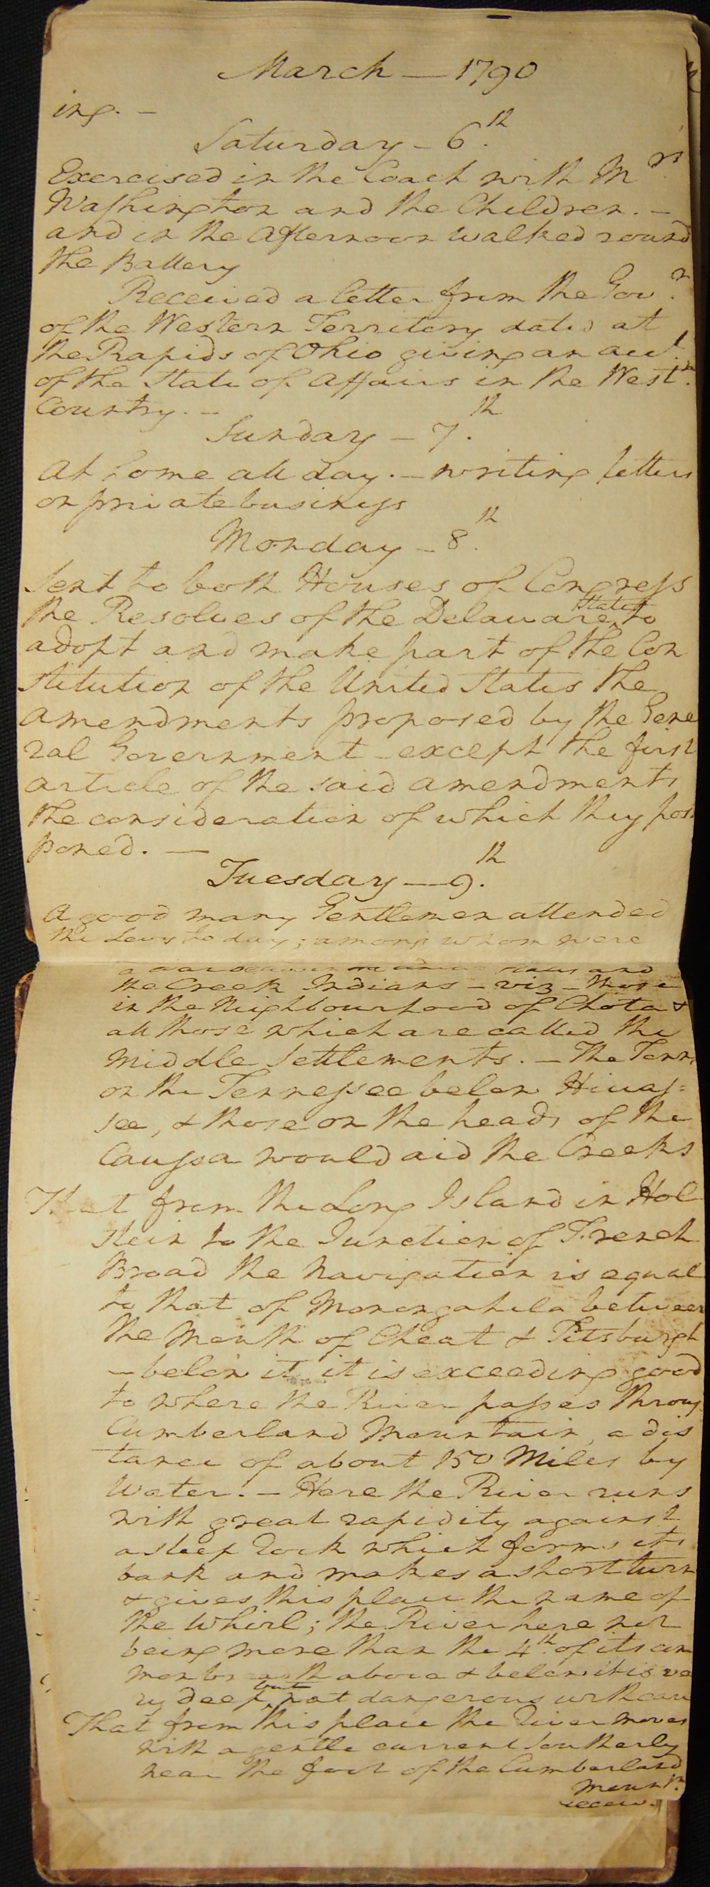 March — 1790
ing. —
Saturday — 6.th
Exercised in the Coach with Mrs.
Washington and the Children. —
and in the Afternoon walked round
the Battery
Received a letter from the Govr.
of the Western Territory dated at
the Rapids of Ohio giving an acct.
of the State of Affairs in the Westn.
Country. —
Sunday — 7.th
At home all day. — writing letters
on private business
Monday — 8.th
Sent to both Houses of Congress
the Resolves of the Delaware State to
adopt and make part of the Con
stitution of the United States the
amendments proposed by the Gene
ral Government — except the first
article of the said amendments
the consideration of which they post
poned. —
Tuesday — 9.th
A good many Gentlemen attended
the Levy to day; among whom were
and
the Creek Indians — viz — those
in the Neighbourhood of Chota &
all those which are called the
Middle Settlements. — The Towns
on the Tennessee below Hiwas=
see, & those on the heads of the
Caussa would aid the Creeks
That from the Long Island in Hol
stein to the Junction of French
Broad the Navigation is equal
to that of Monongahela between
the Mouth of Cheat & Pitsburgh
— below it, it is exceeding good
to where the River passes throug
Cumberland Mountain, a dis
tance of about 150 Miles by
Water. — Here the River runs
with great rapidity against
a steep Rock which forms its
bank and makes a short turn
& gives this place the name of
the Whirl; the River here not
being more than the 4th. of its com
mon breadth above & below it is ve
ry deep, but not dangerous with care
That from this place the River moves
with a gentle current Southerly
near the foot of the Cumberland
Mountn.